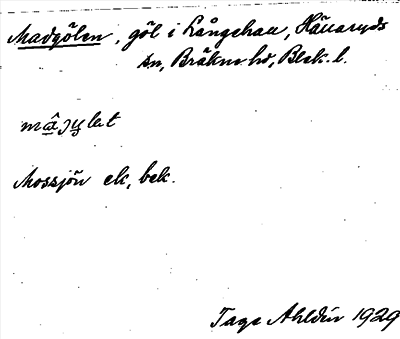 Madgölen, göl i Långehall, Hällaryds
sn, Bräkne hd, Blek. l.
Mossjön ek, bek.
Tage Ahldén 1929